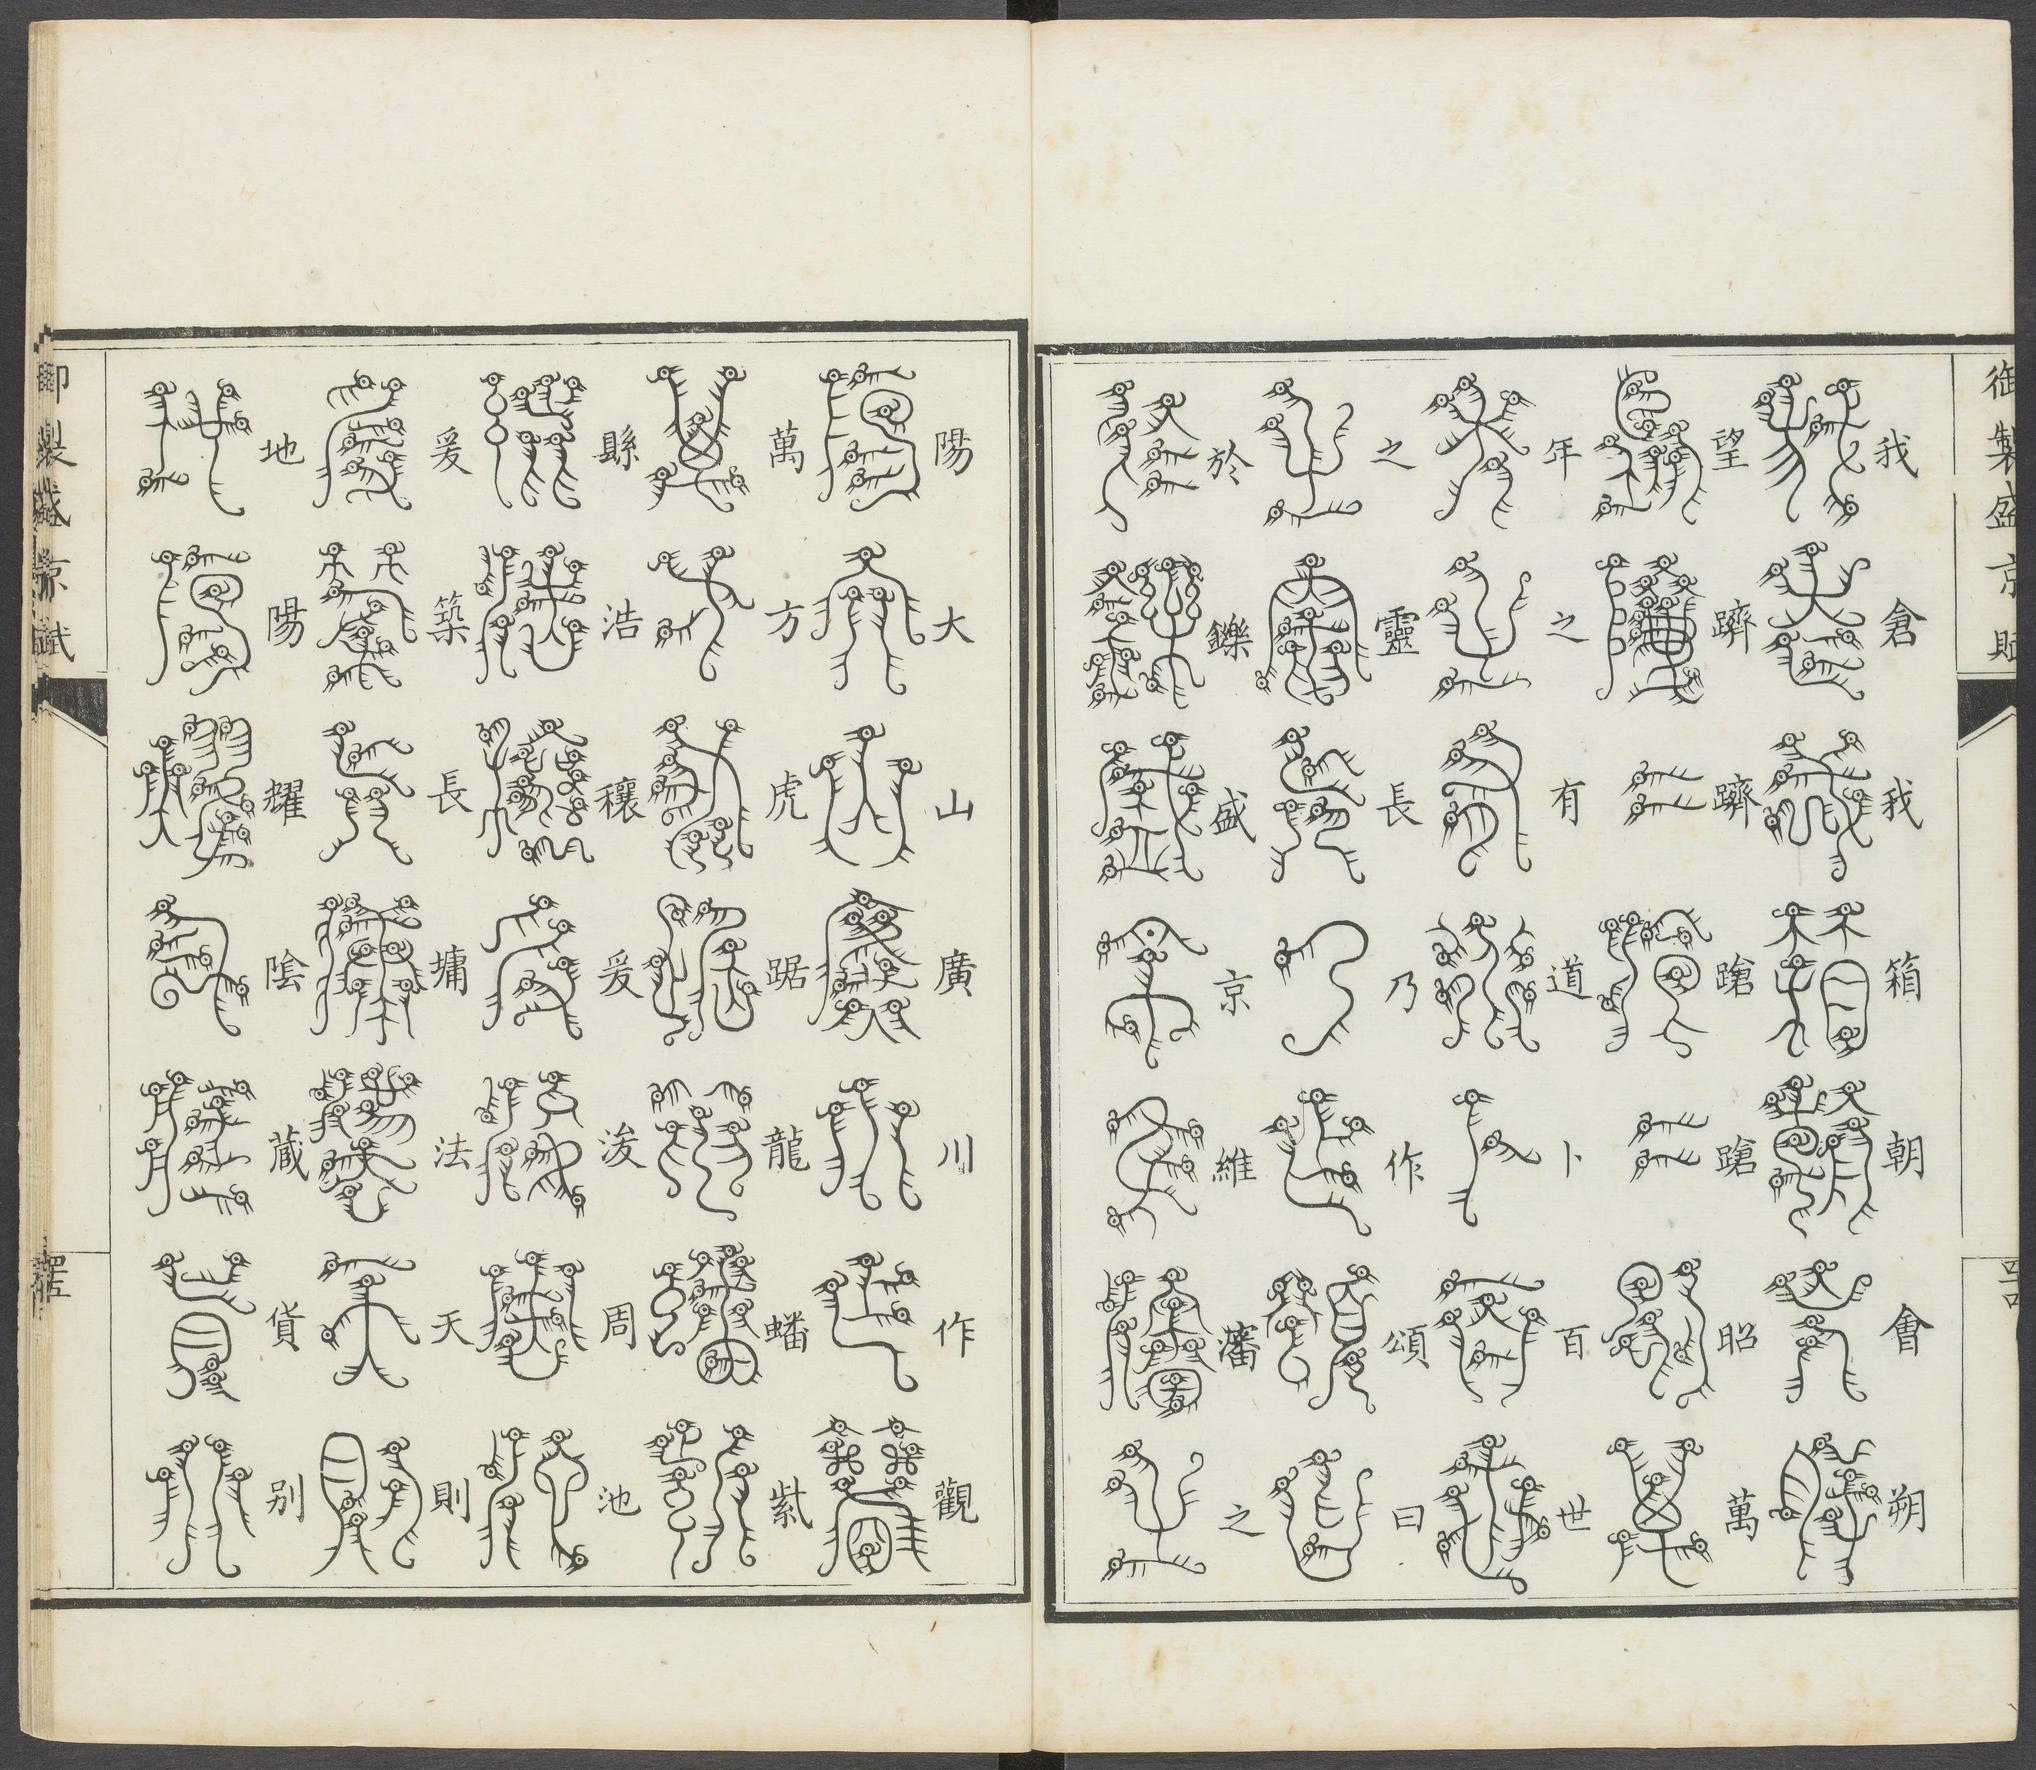 御製盛京賦
我倉我箱朝會朔
望躋躋蹌蹌昭萬
年之有道卜百世
之靈長乃作頌曰
於鑠盛京維瀋之
陽大山廣川作觀
萬方虎踞龍蟠紫
縣浩穰爰浚周池
爰築長墉法天則
地陽耀隂藏貨别
御製盛京賦